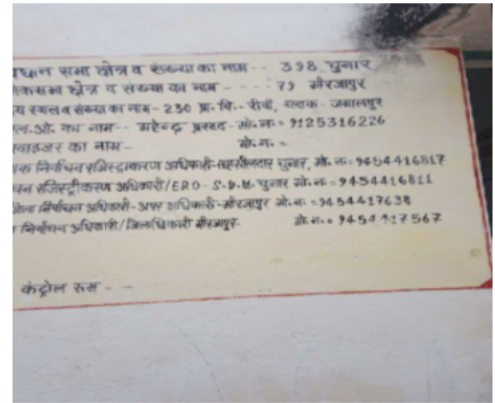 धान सभा क्षेत्र व संख्या का नाम -- 398 चुनार
कसभा क्षेत्र व संख्या का नाम ---- 79 मीरजापुर
य स्थल व संख्या का नाम - 230 प्रा. वि. - ब्लाक - जमालपुर
एल.ओ. का नाम -- महेन्द्र प्रसाद - मो.न. = 9125316226
वाइजर का नाम - मो.न. =
क निर्वाचन रजिस्ट्रीकरण अधिकारी - तहसीलदार चुनार, मो. न. = 9454416817
चन रजिस्ट्रीकरण अधिकारी/ERO - S.D.M. चुनार मो. न. = 9454416811
जिला निर्वाचन अधिकारी - अपर अधिकारी - मीरजापुर मो.न. = 9454417638
निर्वाचन अधिकारी/जिलाधिकारी मीरजापुर - मो.न. = 9454417567
कंट्रोल रूम - -